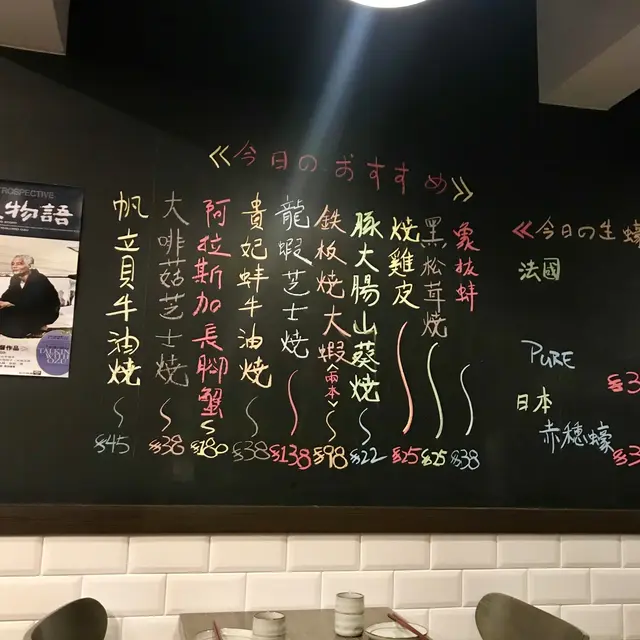 ROSPECTIVE
物語
作品
TALKING
OZU
≪今日のおすすめ≫
帆立貝牛油燒 $45
大啡菇芝士燒 $38
阿拉斯加長腳蟹 $180
貴妃蚌牛油燒 $38
龍蝦芝士燒 $138
鉄板燒大蝦(兩本) $98
豚大腸山葵燒 $22
燒雞皮 $25
黑松茸燒 $25
象拔蚌 $38
≪今日の生蠔
法國
PURE
日本
赤穗蠔